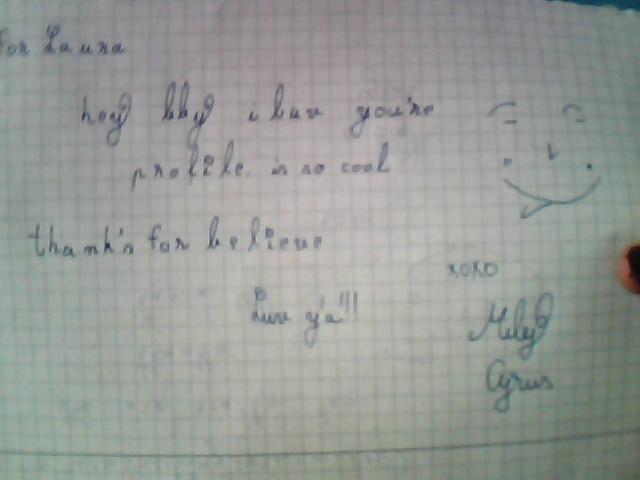 for Laura
hey bby i luv you're
profile. is so cool
thank's for believe
xoxo
Luv ya'!!!
Miley
Cyrus